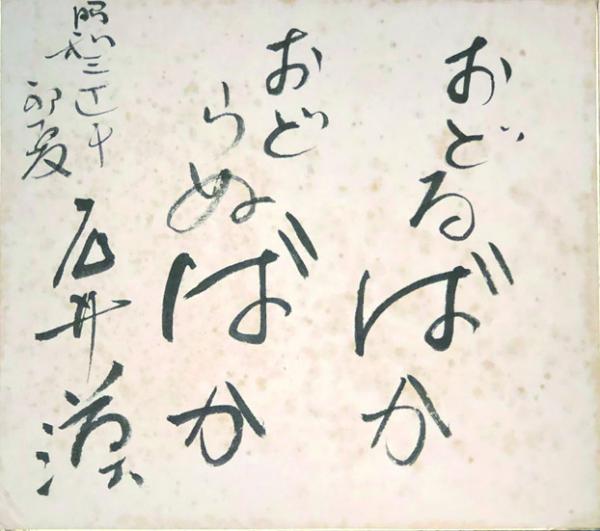 おどるばか
おど
らぬばか
昭和三
初夏
石井漠